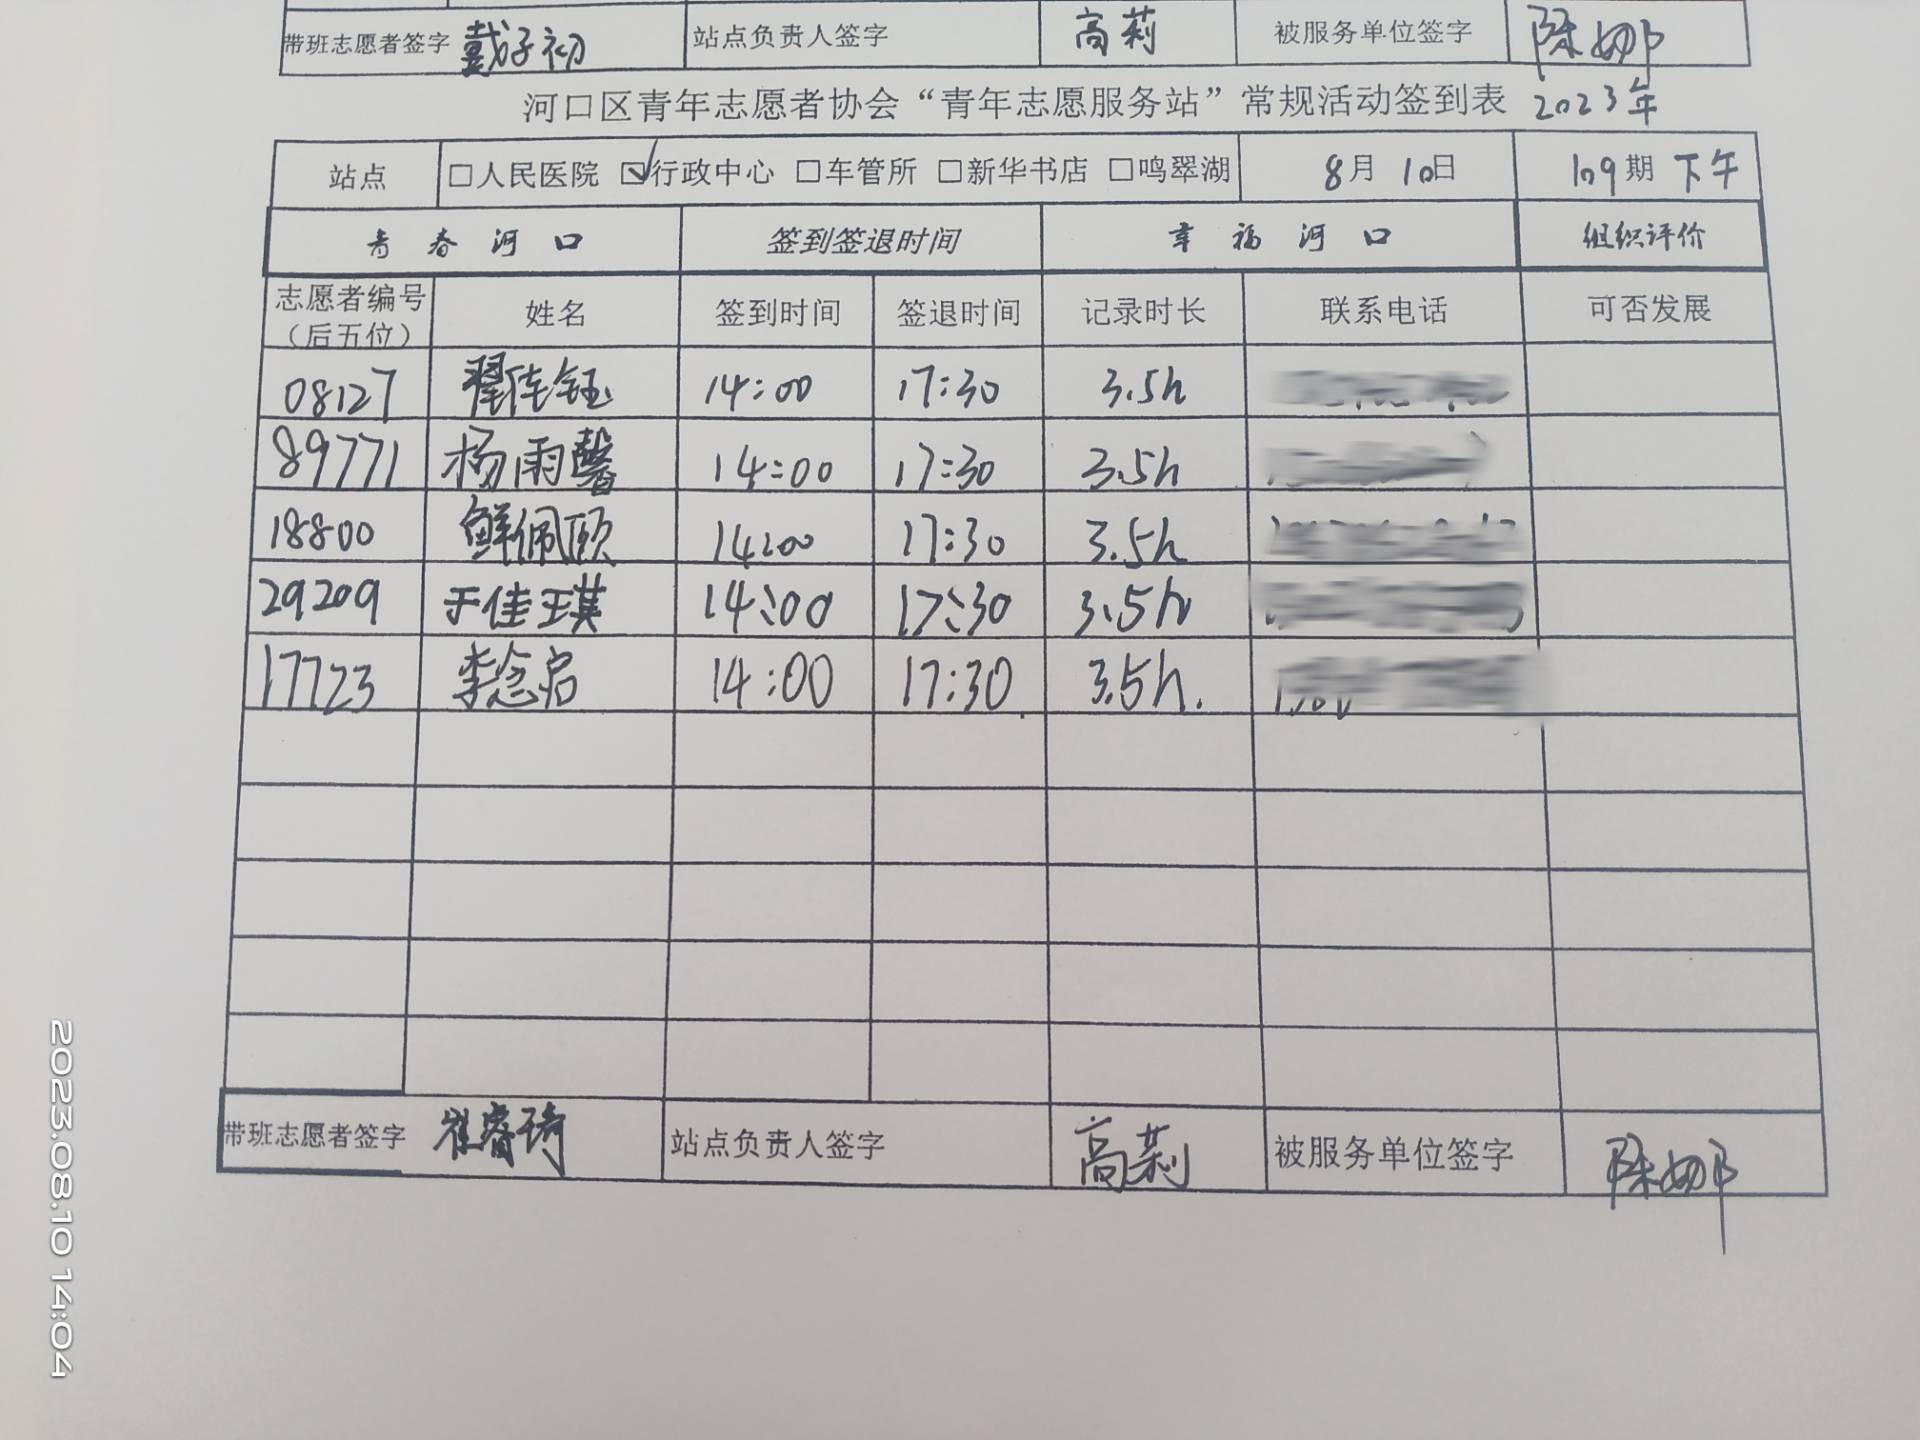 带班志愿者签字 戴子初 站点负责人签字 高莉 被服务单位签字 陈娜
河口区青年志愿者协会“青年志愿服务站”常规活动签到表 2023年
站点 □人民医院 ☑行政中心 □车管所 □新华书店 □鸣翠湖 8月10日 109期 下午
青春河口 签到签退时间 幸福河口 组织评价
志愿者编号（后五位） 姓名 签到时间 签退时间 记录时长 联系电话 可否发展
08127 翟佳钰 14:00 17:30 3.5h
89771 杨雨馨 14:00 17:30 3.5h
18800 鲜佩颀 14:00 17:30 3.5h
29209 于佳琪 14:00 17:30 3.5h
17723 李念启 14:00 17:30 3.5h.
带班志愿者签字 崔睿琦 站点负责人签字 高莉 被服务单位签字 陈娜
2023.08.10 14:04